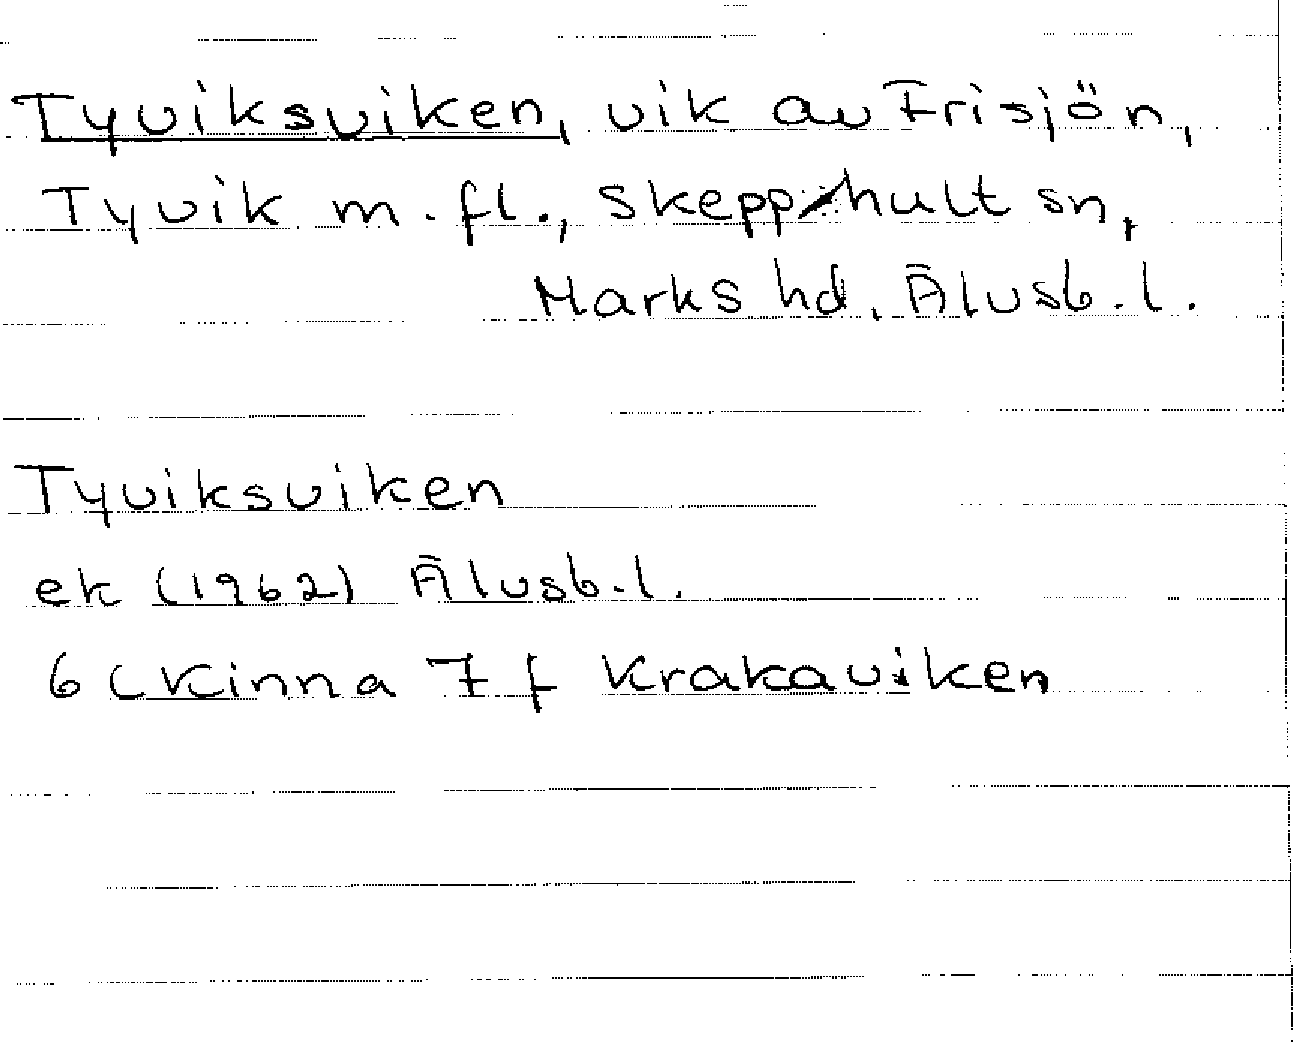 Tyviksviken, vik av Frisjön,
Tyvik m. fl., Skepphult sn,
Marks hd, Älvsb. l.
Tyviksviken
ek (1962) Älvsb. l.
6 C Kinna 7 f Krakaviken